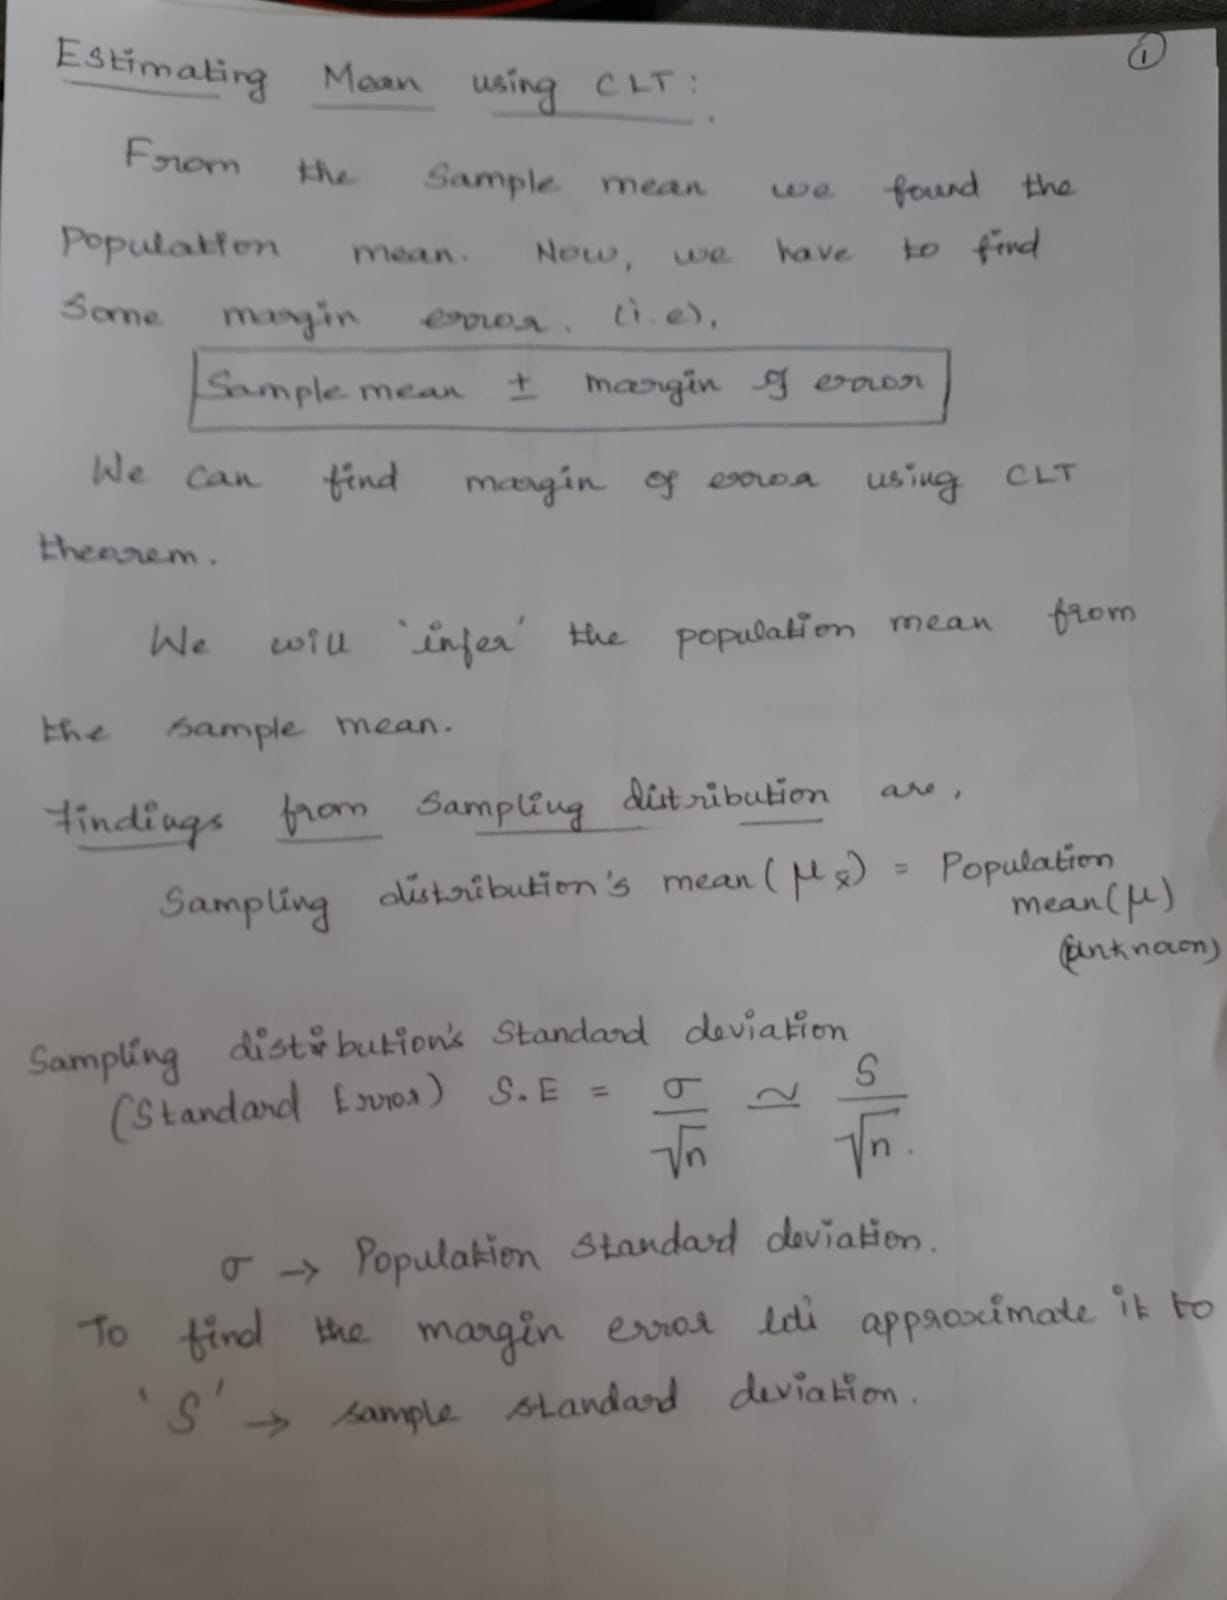 ①
Estimating Mean using CLT:
From the Sample mean we found the
Population mean. Now, we have to find
Some margin error. (i.e),
Sample mean ± margin of error
We can find margin of error using CLT
theorem.
We will 'infer' the population mean from
the sample mean.
Findings from Sampling distribution are,
Sampling distribution's mean (μx̄) = Population
mean (μ)
(unknown)
Sampling distribution's Standard deviation
(Standard Error) S.E = σ/√n ≃ S/√n.
σ → Population Standard deviation.
To find the margin error approximate it to
'S' → sample standard deviation.